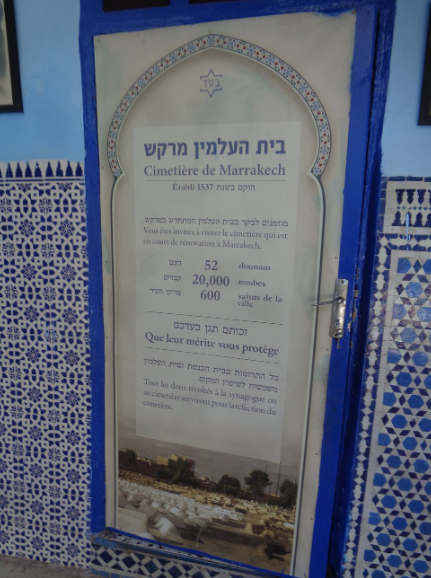 בסד
בית העלמין מרקש
Cimetière de Marrakech
Établi 1537 הוקם בשנת
מוזמנים לבקר בבית העלמין המתחדש במרקש.
Vous êtes invités à visiter le cimetière qui est
en cours de rénovation à Marrakech.
דונם 52 dounam
קברים 20,000 tombes
צדיקי העיר 600 saints de la
ville
זכותם תגן בעדכם
Que leur mérite vous protège
כל התרומות בבית הכנסת ובית העלמין
משמשות לשיפוץ המקום.
Tous les dons récoltés à la synagogue ou
au cimetière serviront pour la réfection du
cimetière.